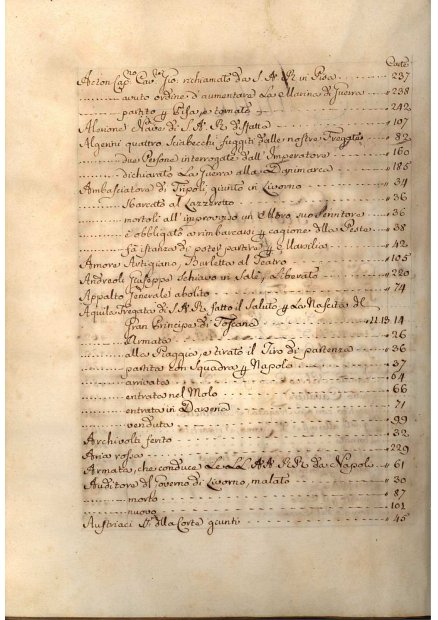 Carte
Acton Cap.no Cav. Gio: richiamato da S. A. R. in Pisa 237
avuto ordine d'aumentare La Marina di Guerra 238
partito p Pisa, e tornato 242
Alcione Nave di S. A. R. disfatta 107
Algerini quattro Sciabecchi fuggiti dalle nostre Fregate 82
due Persone interrogate dall'Imperatore 160
dichiarato La Guerra alla Danimarca 185
Ambasciatore di Tripoli, giunto in Livorno 34
Sbarcato al Lazzeretto 36
mortoli all'improviso un Moro suo Servitore 36
è obbligato a rimbarcarsi p cagione della Peste 38
fà istanza di poter partire p Marsilia 42
Amore Artigiano, Burletta al Teatro 105
Andreoli Giuseppe Schiavo in Salè, Liberato 220
Appalto Generale abolito 74
Aquila Fregata di S. A. R. fatto il Saluto p La Nascita del
Gran Principe di Toscana 11.13.14
Armata 26
alla Piaggia, e tirato il Tiro di partenza 36
partita con Squadra p Napoli 37
arrivata 64
entrata nel Molo 66
entrata in Darsena 71
venduta 99
Archivolti ferito 32
Aria rossa 229
Armata, che conduce Le LL. AA. RR. da Napole 61
Auditore del Governo di Livorno, malato 30
morto 87
nuovo 101
Austriaci della Corte giunti 45